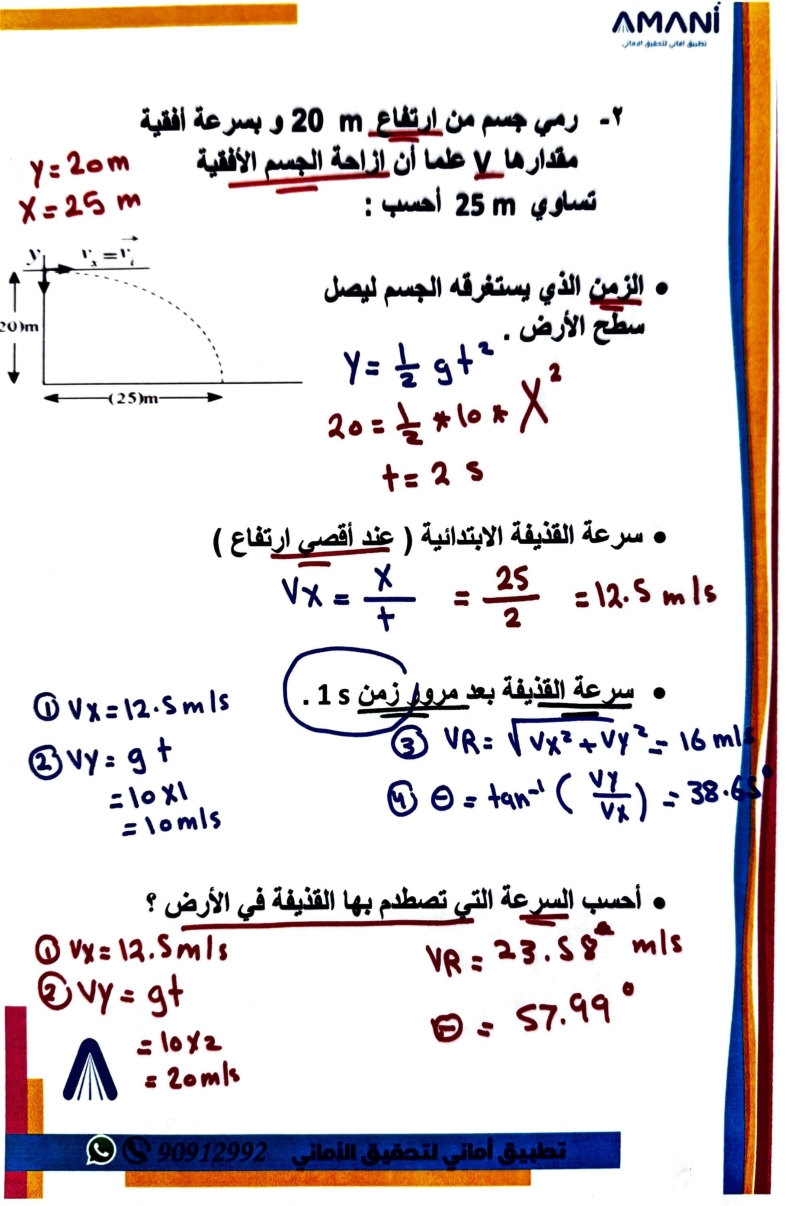 AMANi
تطبيق أماني لتحقيق الأماني
٢- رمي جسم من ارتفاع 20 m و بسرعة أفقية
مقدارها V علما أن إزاحة الجسم الأفقية
تساوي 25 m أحسب :
y = 20m
X = 25 m
y
vₓ = vᵢ
20)m
(25)m
• الزمن الذي يستغرقه الجسم ليصل
سطح الأرض .
y = 1/2 g t²
20 = 1/2 * 10 * X²
t = 2 s
• سرعة القذيفة الابتدائية ( عند أقصي ارتفاع )
Vx = X/t = 25/2 = 12.5 m/s
• سرعة القذيفة بعد مرور زمن 1 s .
① Vx = 12.5 m/s
② Vy = g t
= 10 x 1
= 10 m/s
③ VR = √Vx² + Vy² = 16 m/s
④ Θ = tan⁻¹ ( Vy/Vx ) = 38.65°
• أحسب السرعة التي تصطدم بها القذيفة في الأرض ؟
① Vx = 12.5 m/s
② Vy = gt
= 10 x 2
= 20 m/s
VR = 23.58 m/s
Θ = 57.99°
90912992 تطبيق أماني لتحقيق الأماني